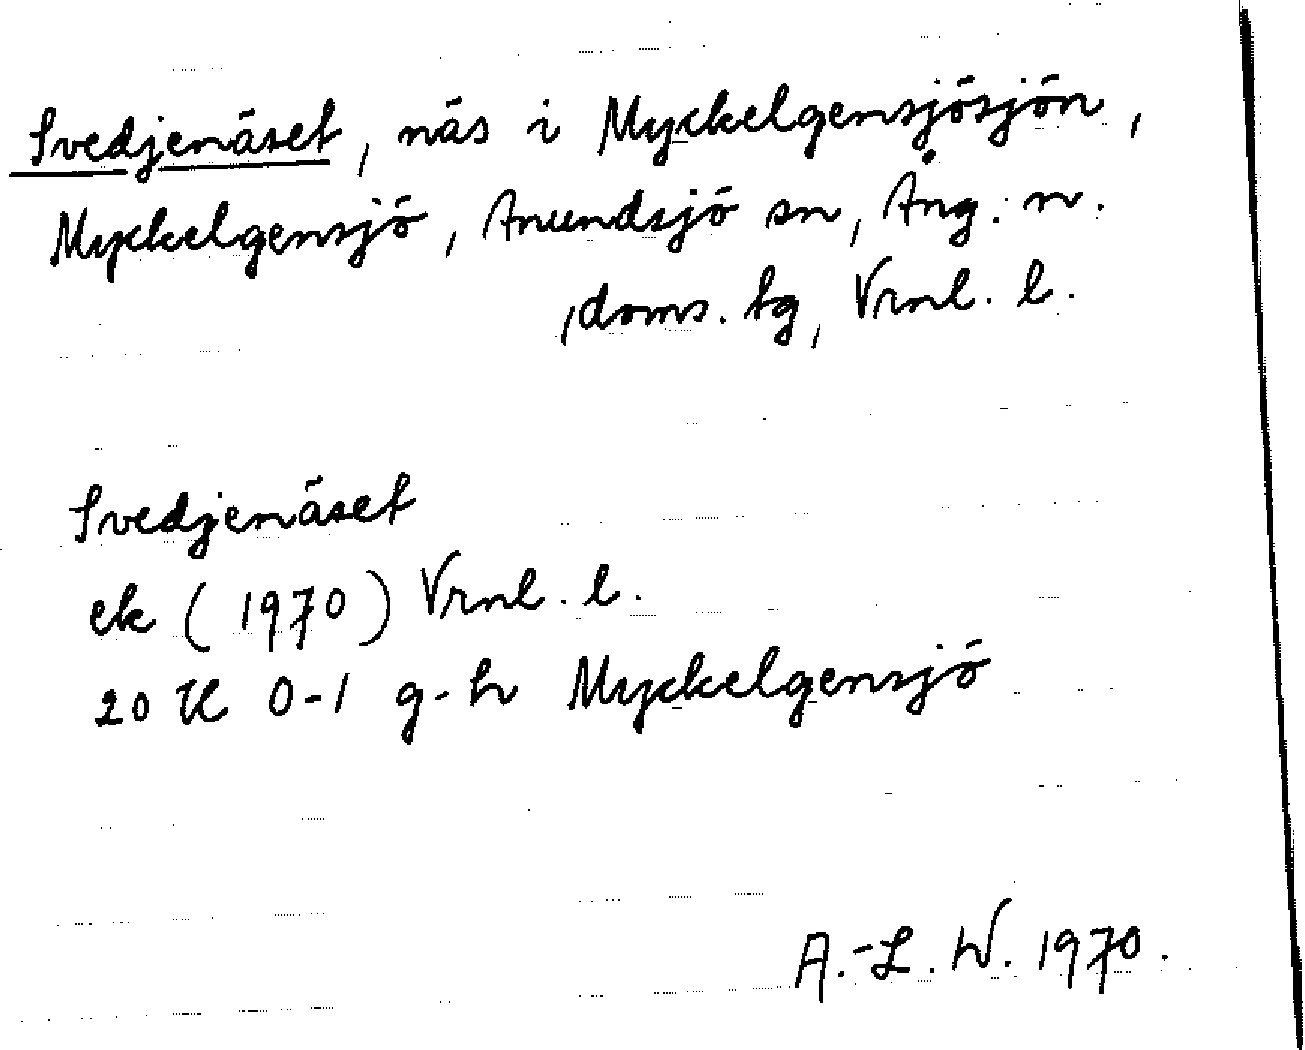 Svedjenäset, näs i Myckelgensjösjön,
Myckelgensjö, Anundsjö sn, Ång. n.
,doms. tg, Vrnl. l.
Svedjenäset
ek (1970) Vrnl. l.
20 H 0-1 g-h Myckelgensjö
A.-L. W. 1970.